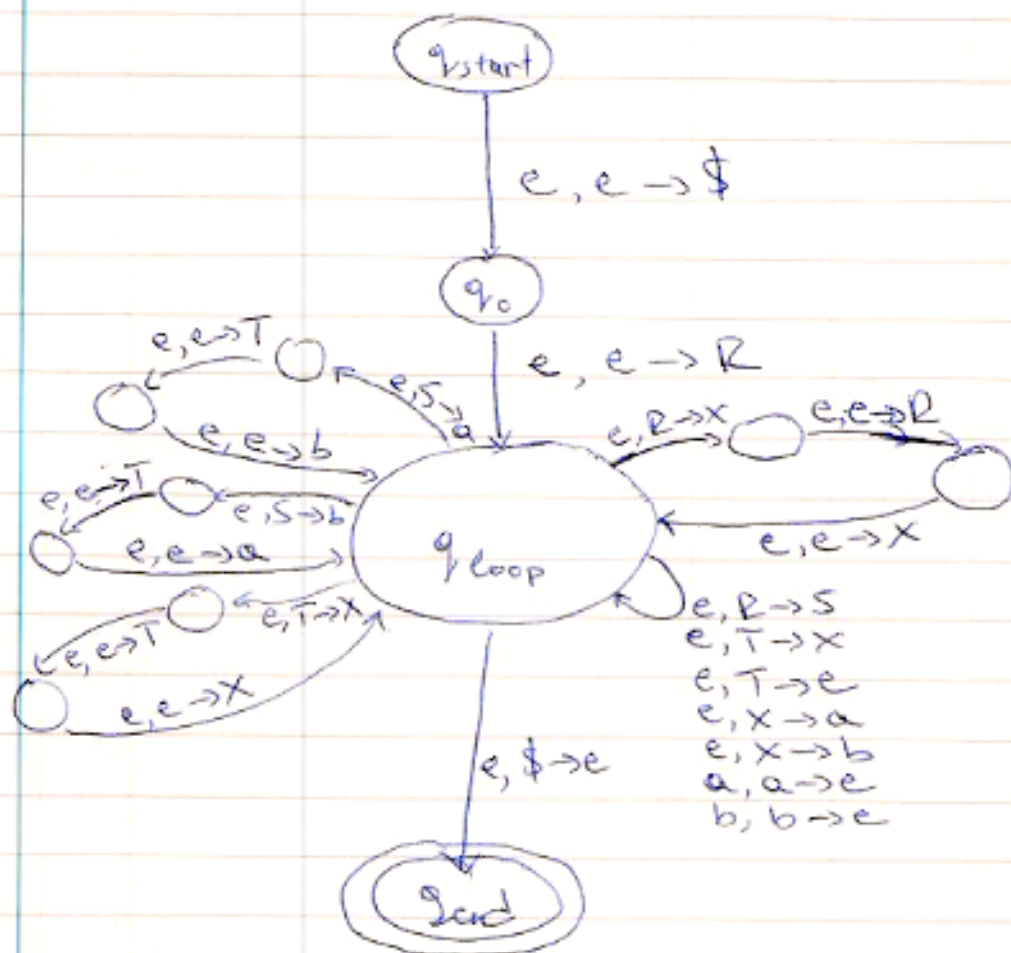 qstart
e, e → $
q0
e, e → R
e, e → T
e, S → a
e, e → b
e, R → X
e, e → R
e, e → X
e, e → T
e, S → b
e, e → a
qloop
e, T → X
e, e → T
e, e → X
e, R → S
e, T → X
e, T → e
e, X → a
e, X → b
a, a → e
b, b → e
e, $ → e
qend